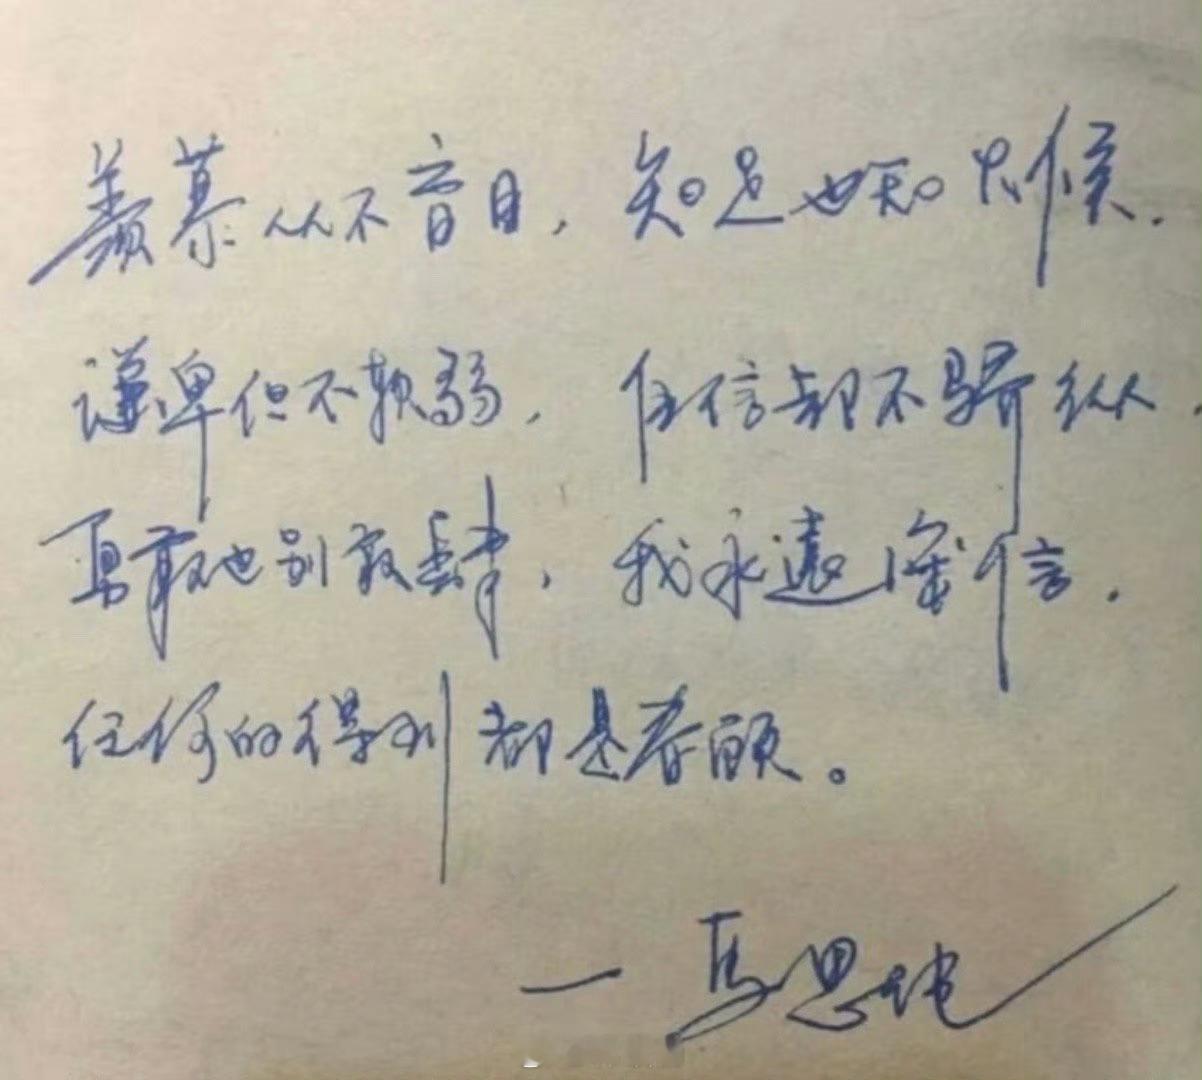 羡慕从不盲目，知足也知火候.
谦卑但不软弱，任信却不骄纵，
勇敢也别放肆，我永远深信.
任何的得到都是眷顾。
一马思纯